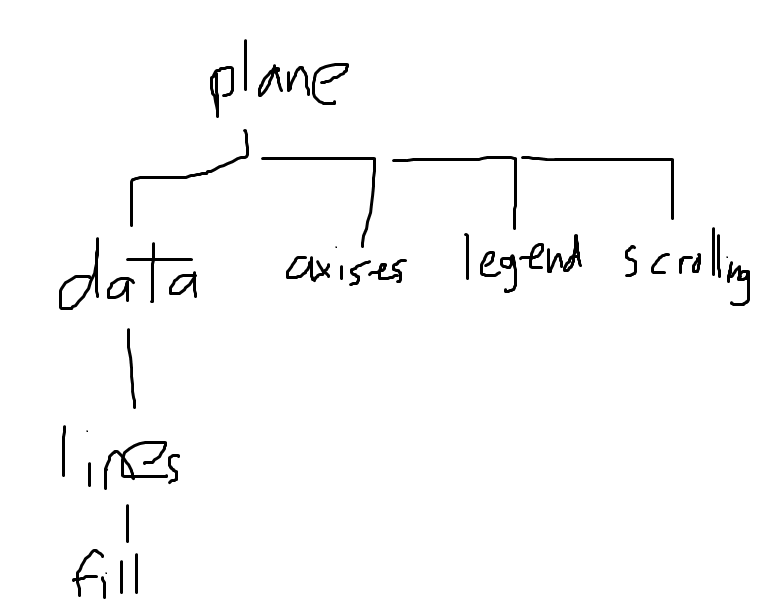 plane
data axises legend scrolling
lines
fill